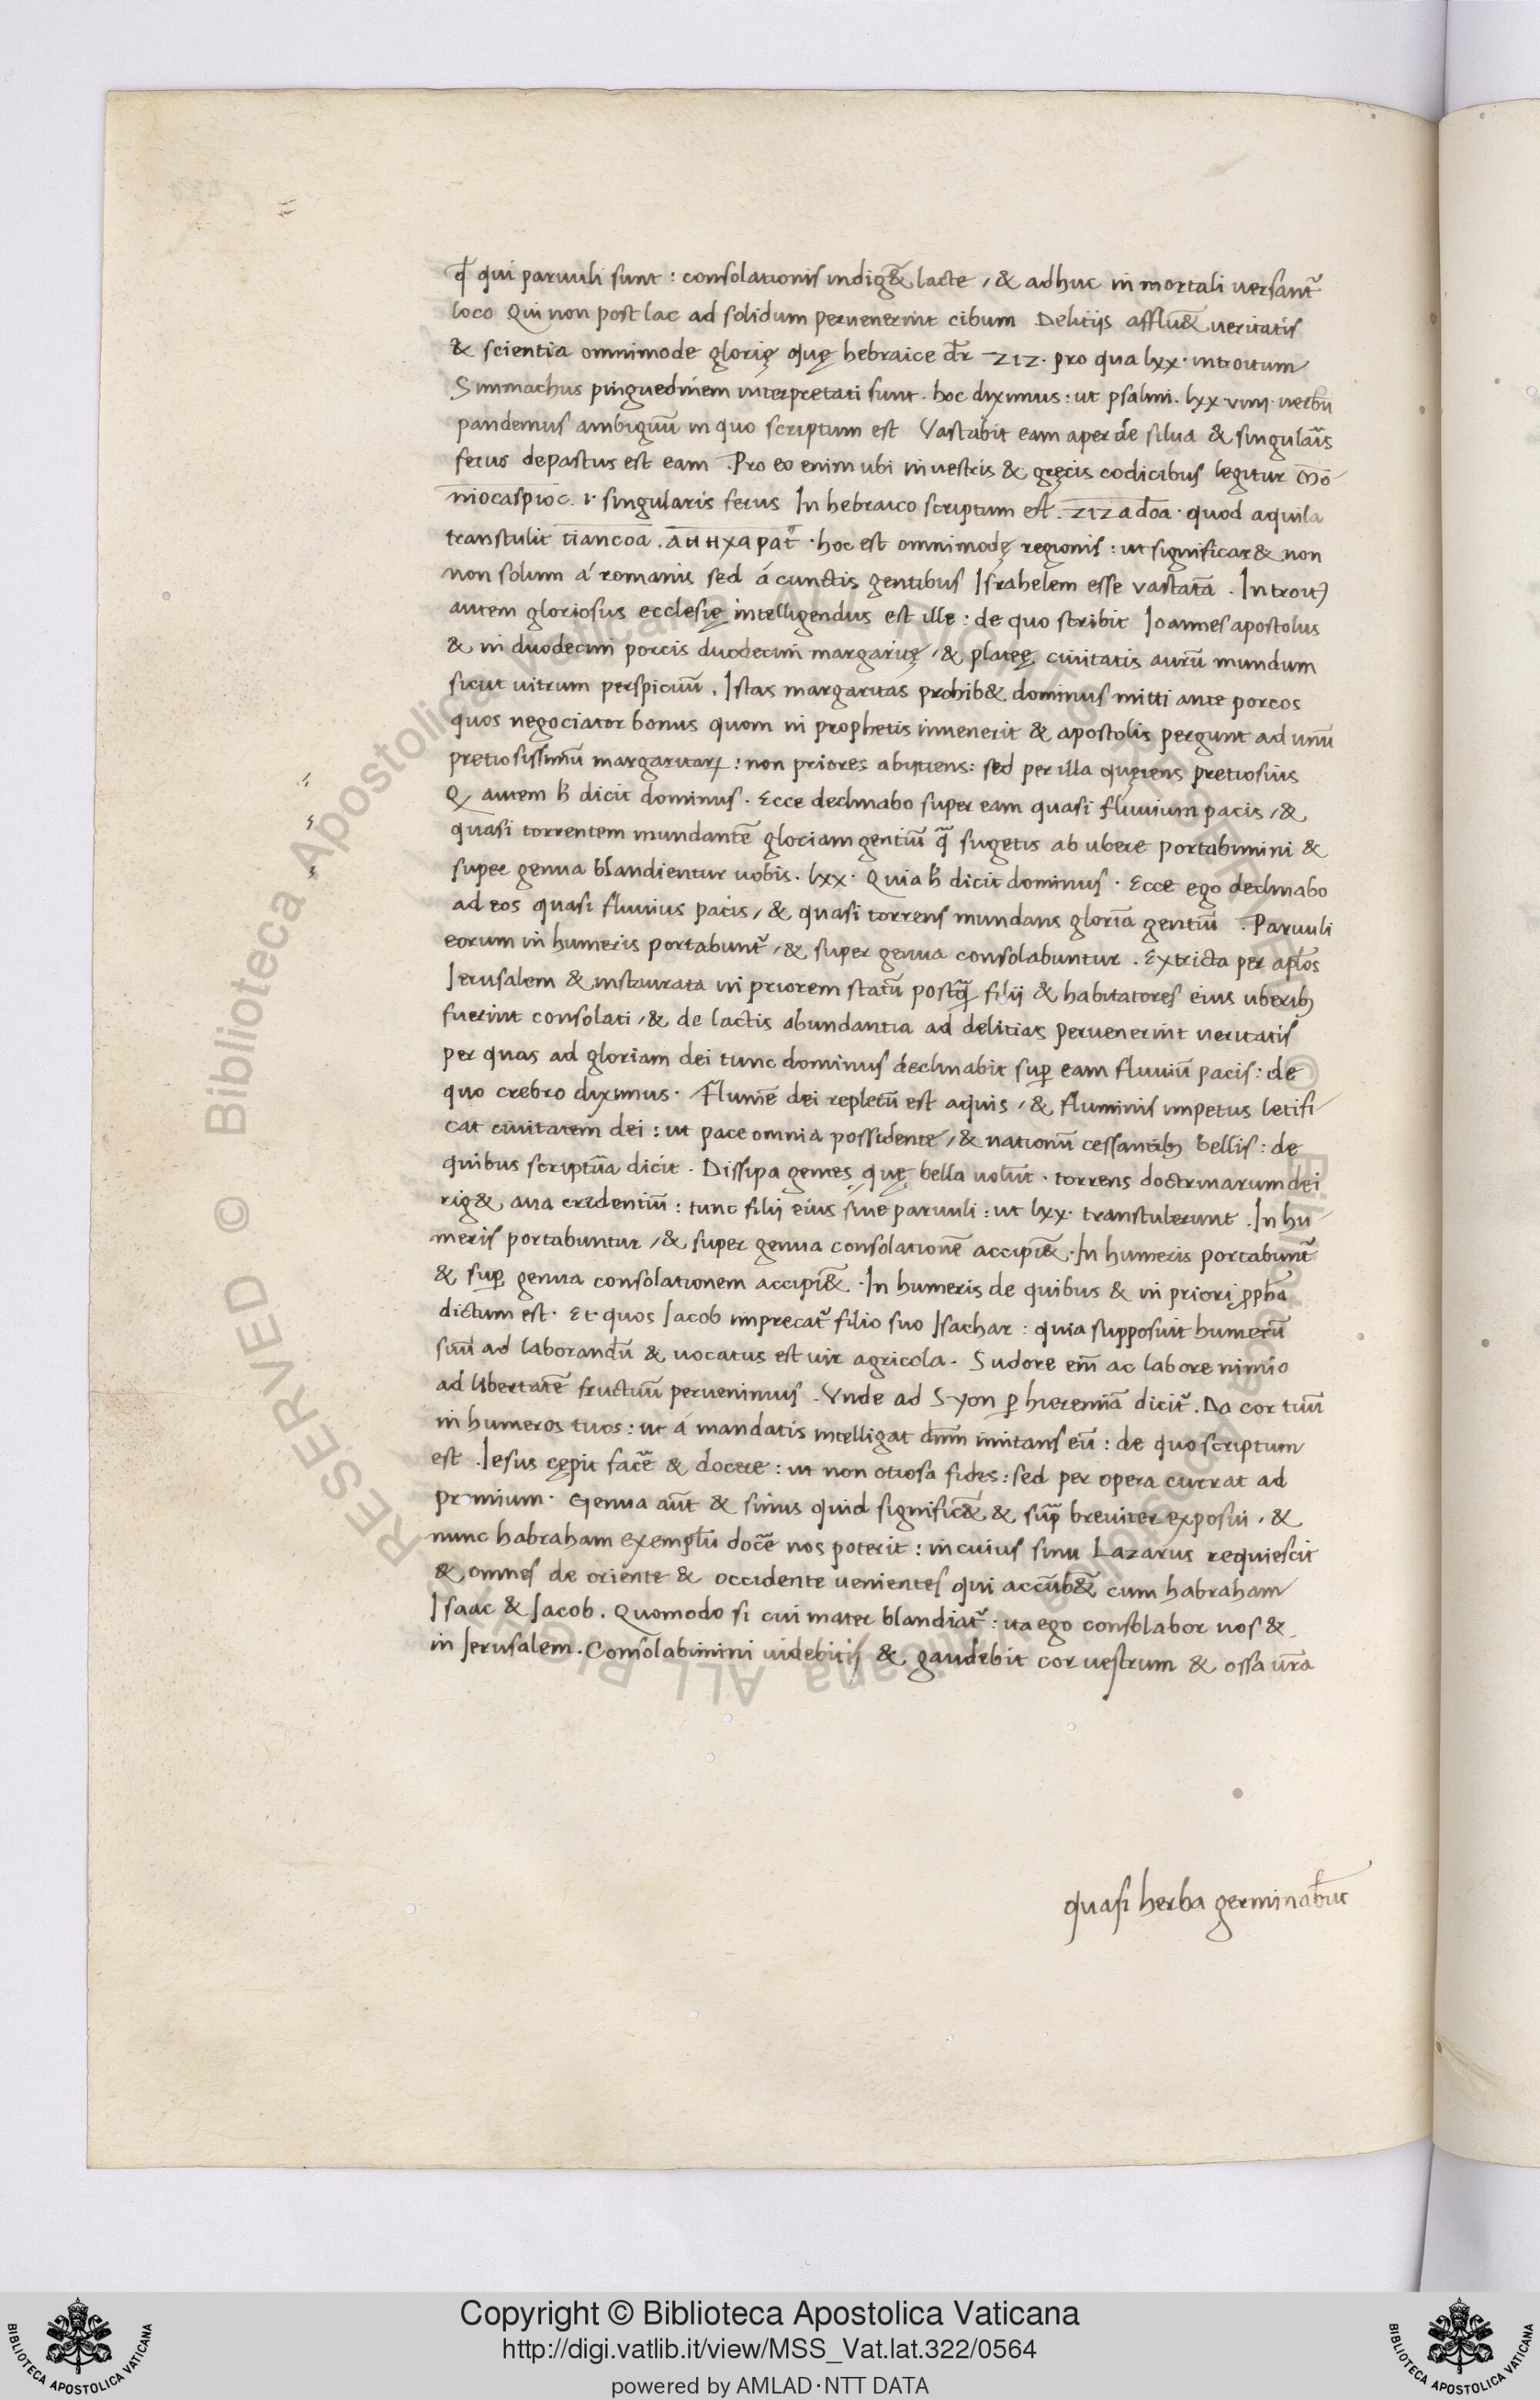 qd qui paruuli sunt : consolationis indig&̄ lacte / & adhuc in mortali uersant᷑
loco Qui non post lac ad solidum peruenerint cibum Delitijs afflu&̄ ueritatis
& scientia omnimode glorię quę hebraice dr̄ ziz . pro qua lxx . introitum
Simmachus pinguedinem interpretati sunt . hoc diximus : ut psalmi . lxx . viiii . uerbū
pandemus ambiguū in quo scriptum est Vastabit eam aper de silua & singularis
ferus depastus est eam . Pro eo enim ubi in uestris & gręcis codicibus legitur
.i. singularis ferus In hebraico scriptum est . ziz adoa . quod aquila
transtulit . hoc est omnimodę regionis : ut significar& non
non solum á romanis sed á cunctis gentibus Israhelem esse vastatā . Introit
autem gloriosus ecclesię intelligendus est ille : de quo scribit Ioannes apostolus
& in duodecim portis duodecim margaritę / & plateę ciuitatis aurū mundum
sicut uitrum perspicuū . Istas margaritas prohib& dominus mitti ante porcos
quos negociator bonus quom in prophetis inuenerit & apostolis pergunt ad unū
pretiosissimū margaritarꝝ : non priores abijciens : sed per illa quęrens pretiosius
Q autem h̄ dicit dominus . Ecce declinabo super eam quasi fluuium pacis / &
quasi torrentem inundantē gloriam gentiū q̄ sugetis ab ubere portabimini &
super genua blandientur uobis . lxx . Quia h̄ dicit dominus . Ecce ego declinabo
ad eos quasi fluuius pacis / & quasi torrens inundans gloriā gentiū . Paruuli
eorum in humeris portabunt᷑ / & super genua consolabuntur . Extricta per apl̄os
Ierusalem & instaurata in priorem statū postq̄ filij & habitatores eius uberib;
fuerint consolati / & de lactis abundantia ad delitias peruenerint ueritatis
per quas ad gloriam dei tunc dominus declinabit suꝑ eam fluuiū pacis : de
quo crebro diximus . Flumē dei repletū est aquis / & fluminis impetus letifi
cat ciuitatem dei : ut pace omnia possidente / & nationū cessantib; bellis : de
quibus scriptūa dicit . Dissipa gentes quę bella uolūt . torrens doctrinarum dei
rig& aua credentiū : tunc filij eius siue paruuli : ut lxx . transtulerunt . In hu
meris portabuntur / & super genua consolationē accipi&̄ . In humeris portabunt᷑
& suꝑ genua consolationem accipi&̄ . In humeris de quibus & in priori ꝓpha
dictum est . Et quos Iacob imprecat᷑ filio suo Isachar : quia supposuit humerū
suū ad laborandū & uocatus est uir agricola . Sudore em̄ ac labore nimio
ad libertatē fructuū peruenimus . Vnde ad Syon ꝑ hieremiā dicit᷑ . Da cor tuū
in humeros tuos : ut á mandatis intelligat dn̄m imitans eū : de quo scriptum
est . Iesus cępit facēe & docere : ut non otiosa fides : sed per opera currat ad
premium . Genua aūt & sinus quid signific&̄ & sup̄ breuiter exposui / &
nunc habraham exemplū docēe nos poterit : in cuius sinu Lazarus requiescit
& omnes de oriente & occidente uenientes qui accūb&̄ cum habraham
Isaac & Iacob . Quomodo si cui mater blandiat᷑ : ita ego consolabor uos &
in Ierusalem . Consolabimini uidebitis & gaudebit cor uestrum & ossa ur̄a
quasi herba germinabūt
RESERVED © Biblioteca Apostolica Vaticana ALL RIGHTS RESERVED © Biblioteca Apostolica Vaticana ALL RIGHTS
Copyright © Biblioteca Apostolica Vaticana
http://digi.vatlib.it/view/MSS_Vat.lat.322/0564
powered by AMLAD·NTT DATA
BIBLIOTECA APOSTOLICA VATICANA
BIBLIOTECA APOSTOLICA VATICANA